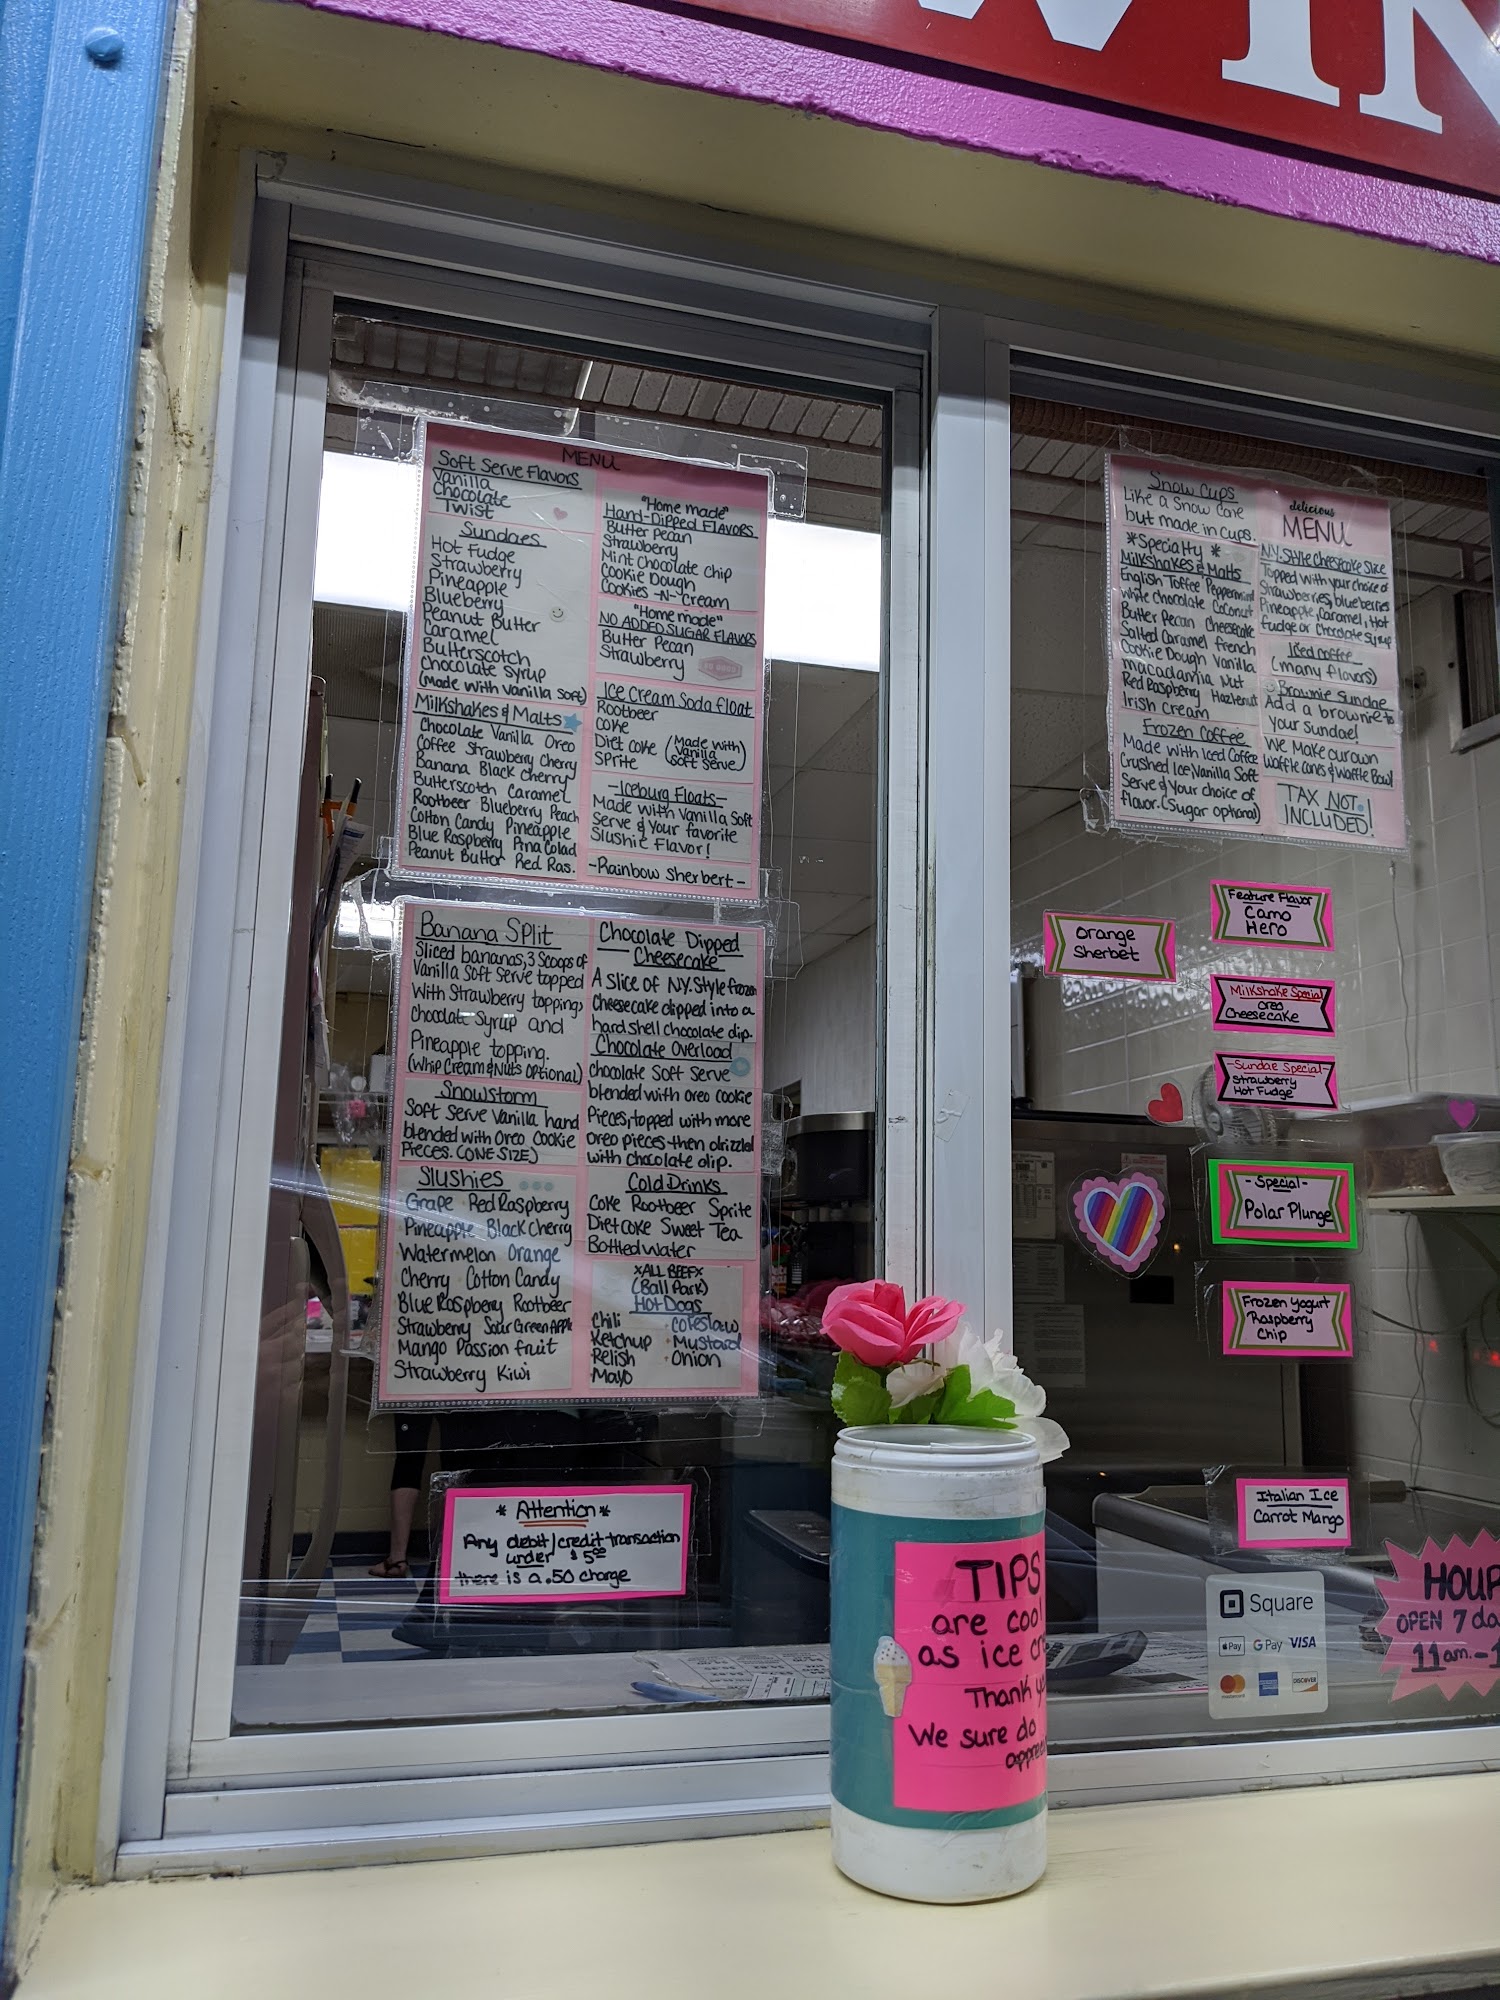 WIN
MENU
Soft Serve Flavors
Vanilla
Chocolate
Twist
Sundaes
Hot Fudge
Strawberry
Pineapple
Blueberry
Peanut Butter
Caramel
Butterscotch
Chocolate Syrup
(Made with Vanilla Soft)
Milkshakes & Malts
Chocolate Vanilla Oreo
Coffee Strawberry Cherry
Banana Black Cherry
Butterscotch Caramel
Rootbeer Blueberry Peach
Cotton Candy Pineapple
Blue Raspberry Pina Colad
Peanut Butter Red Ras.
"Home made"
Hand-Dipped FLAVORS
Butter Pecan
Strawberry
Mint Chocolate Chip
Cookie Dough
Cookies -N- Cream
"Home made"
NO ADDED SUGAR FLAVORS
Butter Pecan
Strawberry
SO GOOD
Ice Cream Soda float
Rootbeer
Coke
Diet Coke (Made with
Vanilla
Soft Serve)
Sprite
-Iceburg Floats-
Made with Vanilla Soft
Serve & Your favorite
Slushie Flavor!
-Rainbow Sherbert-
Banana Split
Sliced bananas, 3 Scoops of
Vanilla Soft Serve topped
With Strawberry topping,
Chocolate Syrup and
Pineapple topping.
(Whip Cream & Nuts Optional)
Snowstorm
Soft Serve Vanilla hand
blended with Oreo Cookie
Pieces. (ONE SIZE)
Slushies
Grape Red Raspberry
Pineapple Black Cherry
Watermelon Orange
Cherry Cotton Candy
Blue Raspberry Rootbeer
Strawberry Sour Green Apple
Mango Passion fruit
Strawberry Kiwi
Chocolate Dipped
Cheesecake
A slice of N.Y. Style frozen
Cheesecake dipped into a
hard shell chocolate dip.
Chocolate Overload
Chocolate Soft Serve
blended with oreo cookie
Pieces, topped with more
oreo pieces then drizzled
with chocolate dip.
Cold Drinks
Coke Rootbeer Sprite
Diet coke Sweet Tea
Bottled Water
*ALL BEEF*
(Ball Park)
Hot Dogs
Chili Coleslaw
Ketchup Mustard
Relish Onion
Mayo
* Attention *
Any debit/credit transaction
under $5.00
there is a .50 charge
Snow Cups
Like a Snow Cone
but made in cups.
*Specialty *
Milkshakes & Malts
English Toffee Peppermint
White Chocolate Coconut
Butter Pecan Cheesecake
Salted Caramel French
Cookie Dough Vanilla
Macadamia Nut
Red Raspberry Hazlenut
Irish Cream
Frozen Coffee
Made with Iced Coffee
Crushed Ice Vanilla Soft
Serve & Your choice of
flavor. (Sugar optional)
delicious
MENU
N.Y. Style Cheesecake Slice
Topped with your choice of
Strawberries, blueberries
Pineapple, Caramel, Hot
fudge or Chocolate Syrup
Iced Coffee
(many flavors)
Brownie Sundae
Add a brownie to
your Sundae!
We Make our own
Waffle Cones & Waffle Bowl
TAX NOT
INCLUDED!
Orange
Sherbet
Feature Flavor
Camo
Hero
Milkshake Special
Oreo
Cheesecake
-Sundae Special-
Strawberry
Hot Fudge
-Special-
Polar Plunge
Frozen Yogurt
Raspberry
Chip
Italian Ice
Carrot Mango
Square
Pay G Pay VISA
mastercard DISCOVER
HOUR
OPEN 7 da
11am.-1
TIPS
are cool
as ice cr
Thank y
We sure do
apprec